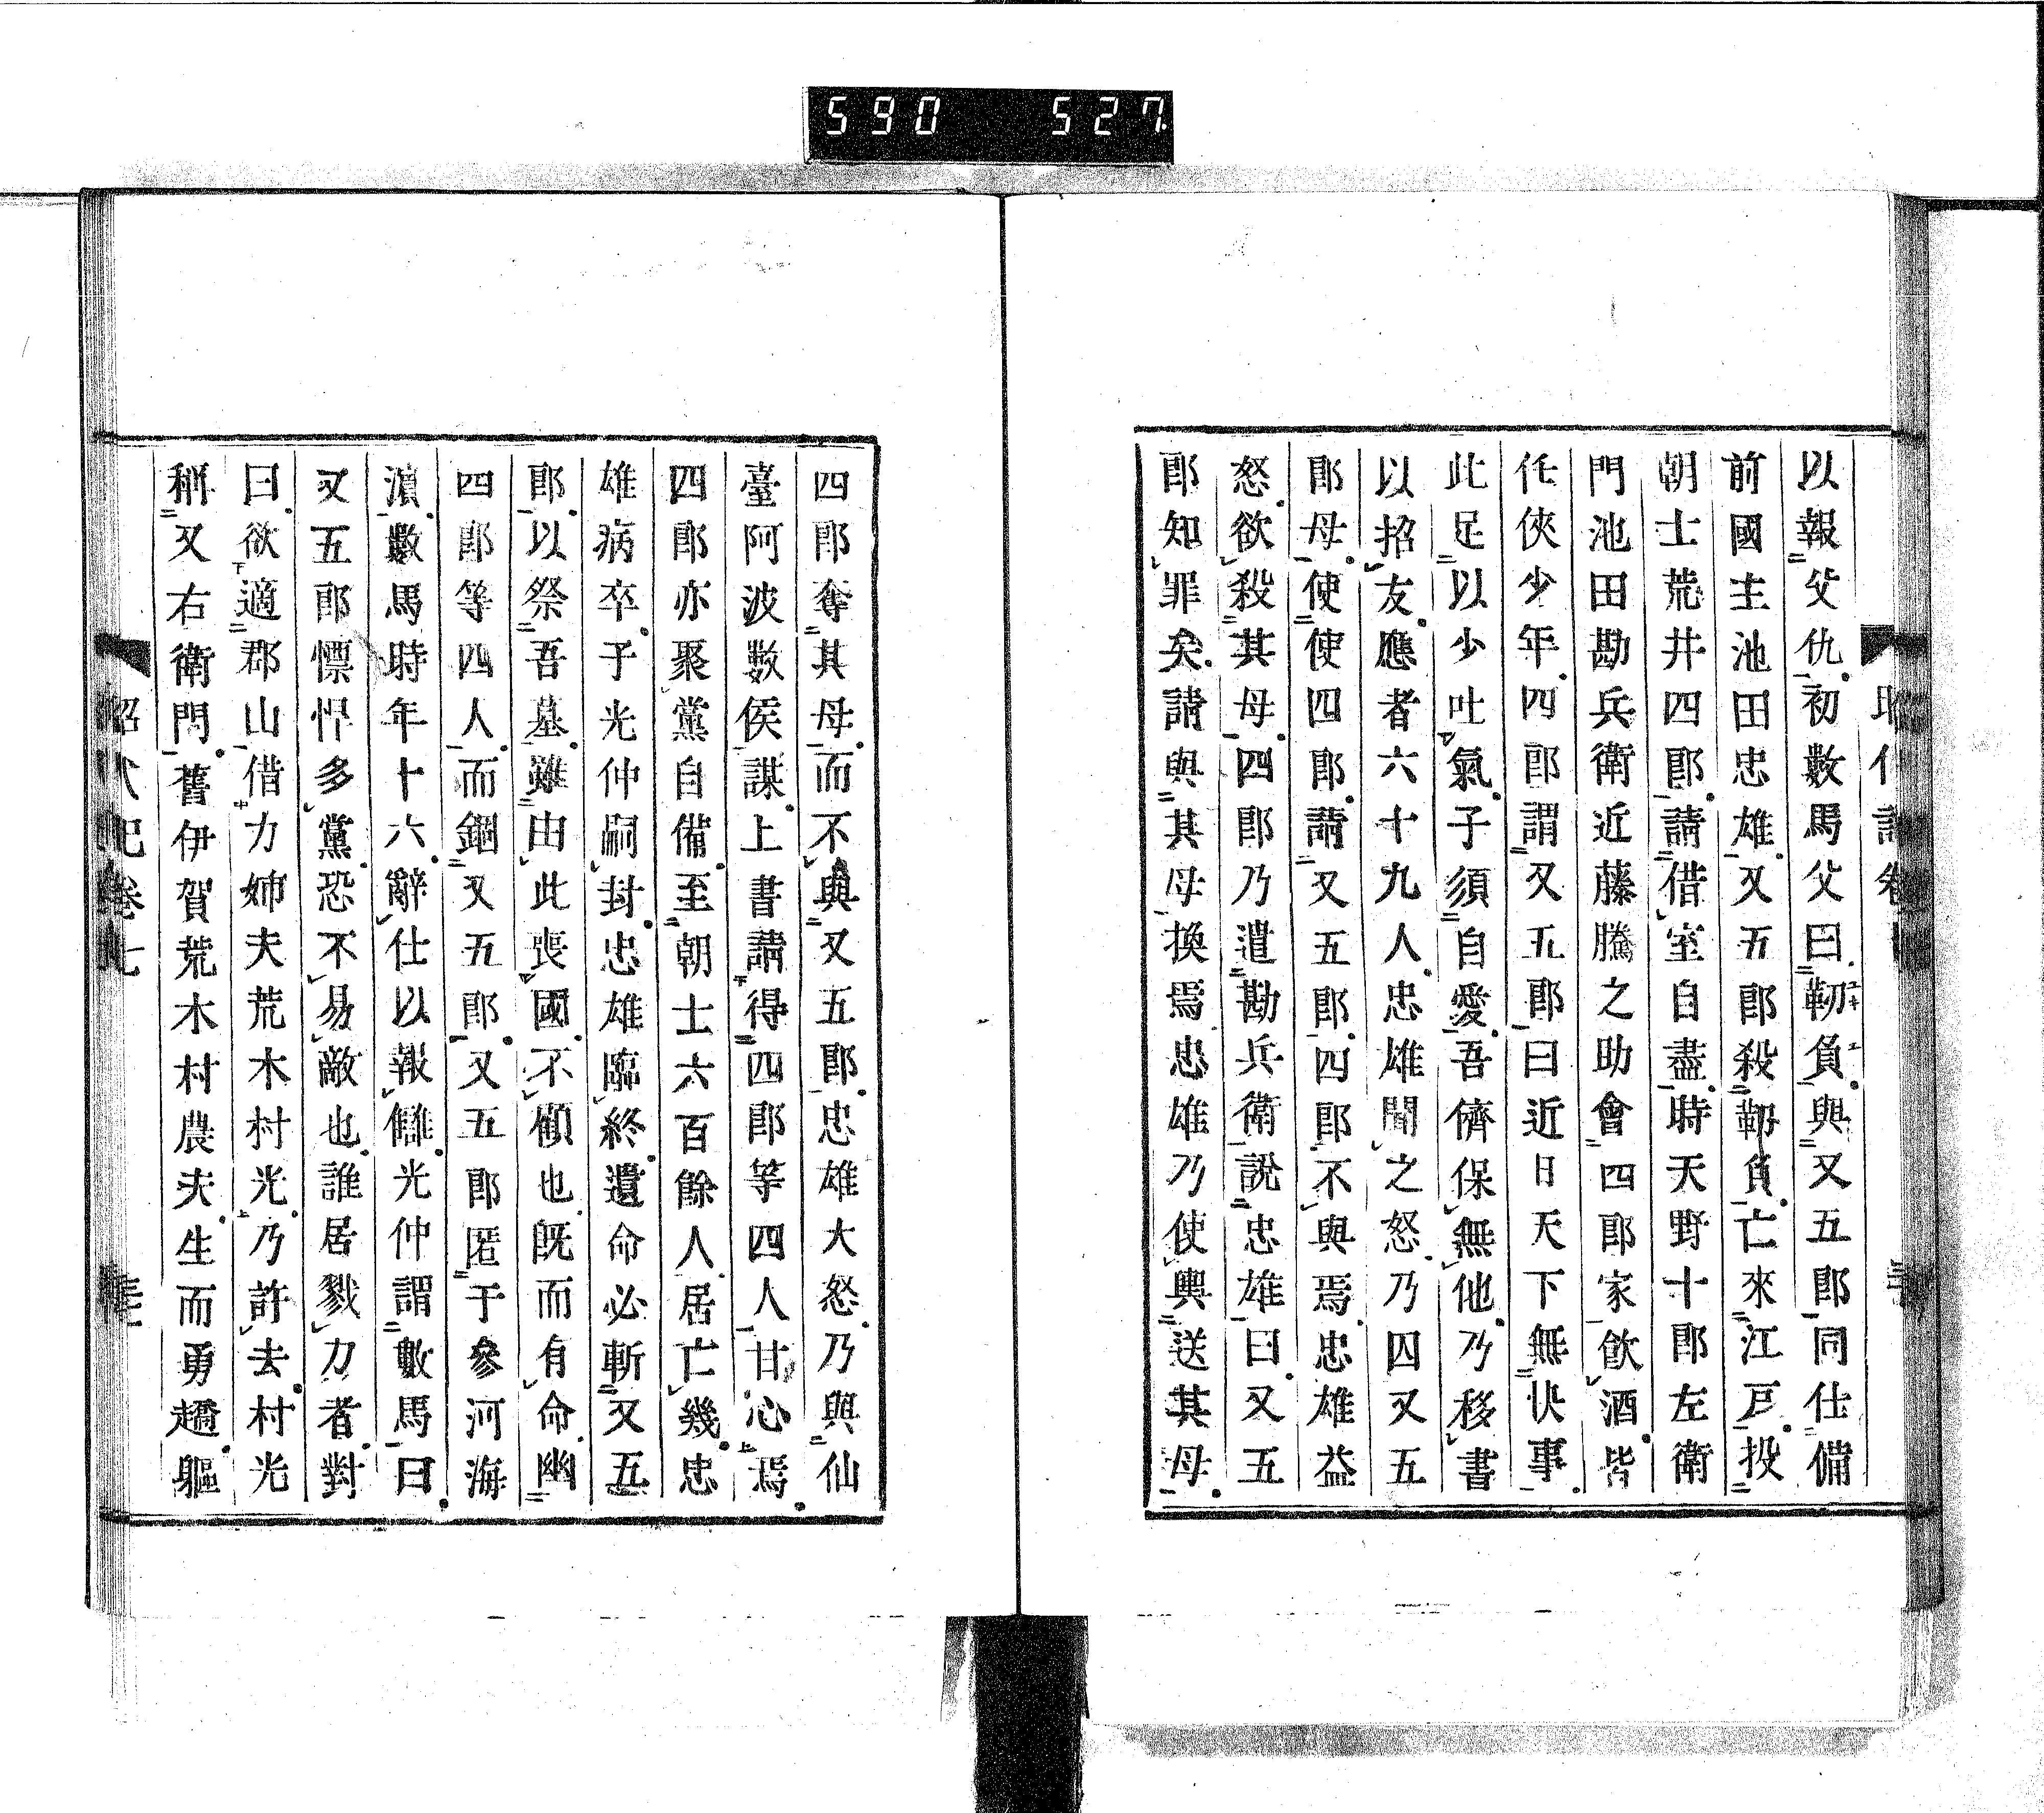 590 527
以報父仇初數馬父曰靭負與又五郎同仕備
前國主池田忠雄又五郎殺靭負亡來江戸投
朝士荒井四郎請借室自盡時天野十郎左衛
門池田勘兵衛近藤騰之助會四郎家飮酒皆
任俠少年四郎謂又五郎曰近日天下無快事
此足以少吐氣子須自愛吾儕保無他乃移書
以招友應者六十九人忠雄聞之怒乃囚又五
郎母使使四郎請又五郎四郎不與焉忠雄益
怒欲殺其母四郎乃遣勘兵衛說忠雄曰又五
郎知罪矣請與其母換焉忠雄乃使輿送其母
四郎奪其母而不與又五郎忠雄大怒乃與仙
臺阿波數侯謀上書請得四郎等四人甘心焉
四郎亦聚黨自備至朝士六百餘人居亡幾忠
雄病卒子光仲嗣封忠雄臨終遺命必斬又五
郎以祭吾墓雖由此喪國不顧也旣而有命幽
四郎等四人而錮又五郎又五郎匿于參河海
濵數馬時年十六辭仕以報讎光仲謂數馬曰
又五郎慓悍多黨恐不易敵也誰居戮力者對
曰欲適郡山借力姉夫荒木村光乃許去村光
稱又右衛門舊伊賀荒木村農夫生而勇趫軀
昭代記卷七